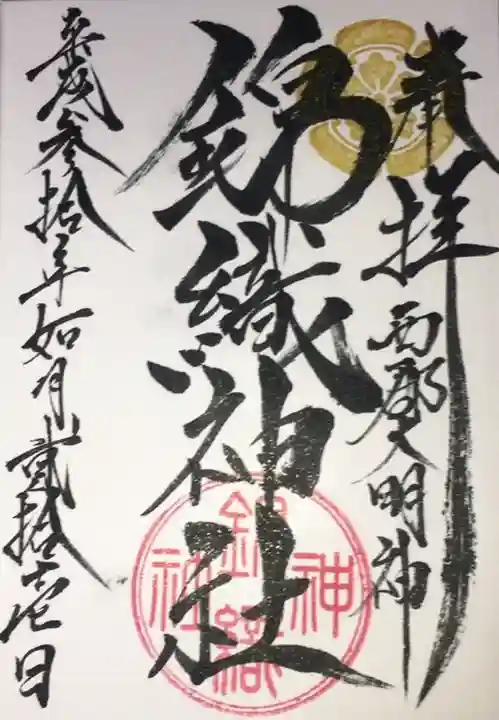 奉拝
西郡大明神
錦織神社
錦織神社
平成参拾年如月貮拾壱日